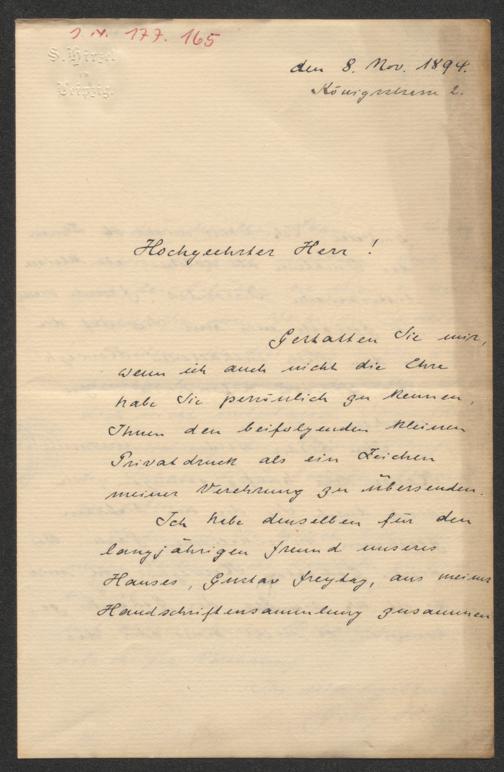 J. N. 177. 165
S. Hirzel
in
Leipzig.
den 8. Nov. 1894.
Königstrasse 2.
Hochgeehrter Herr!
Gestatten Sie mir,
wenn ich auch nicht die Ehre
habe Sie persönlich zu kennen,
Ihnen den beifolgenden kleinen
Privatdruck als ein Zeichen
meiner Verehrung zu übersenden.
Ich habe denselben für den
langjährigen Freund unseres
Hauses, Gustav Freytag, aus meiner
Handschriftensammlung zusammen